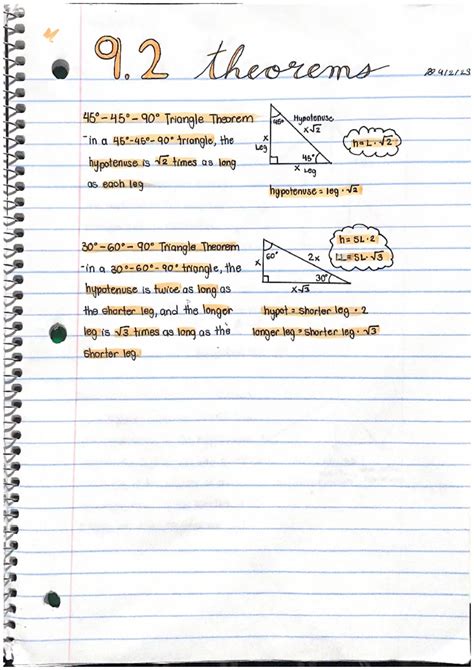 9.2 theorems
45°-45°-90° Triangle Theorem
-in a 45°-45°-90° triangle, the
hypotenuse is √2 times as long
as each leg
45°
Hypotenuse
x√2
x
Leg
45°
x Leg
h=L·√2
hypotenuse = leg·√2
30°-60°-90° Triangle Theorem
-in a 30°-60°-90° triangle, the
hypotenuse is twice as long as
the shorter leg, and the longer
leg is √3 times as long as the
shorter leg.
60°
2x
x
30°
x√3
h=SL·2
LL=SL·√3
hypot=shorter leg·2
longer leg=shorter leg·√3